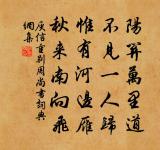 陽關萬里道
不見一人歸
惟有河邊雁
秋来南向飛
庾信重别周尚書詞典
網集